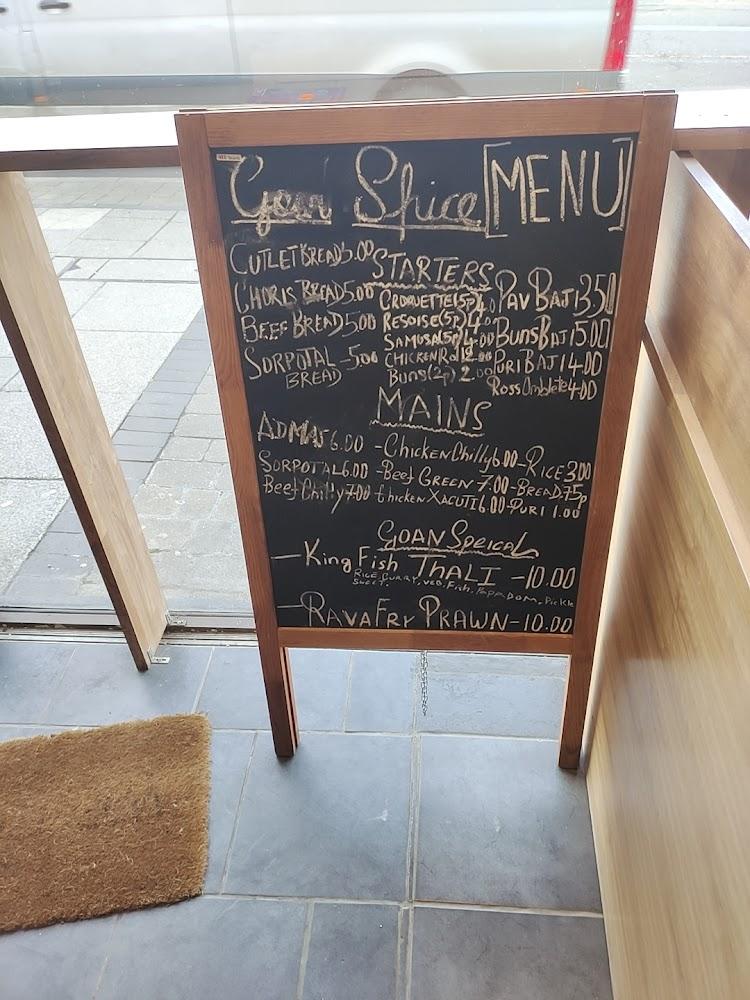 Goan Spice [MENU]
CUTLET BREAD 5.00
CHORIS BREAD 5.00
BEEF BREAD 5.00
SORPOTAL - 5.00
BREAD
STARTERS
CROQUETTE(5P) 4.0
RESOISE(5P) 4.0
SAMUSA(5P) 4.00
CHICKEN Roll 2.00
Buns(2P) 2.00
PAV BAJI 3.50
BUNS BAJI 5.00
PURI BAJI 4.00
Ross Omblete 4.00
MAINS
ADMAS 6.00 - Chicken Chilly 6.00 - RICE 3.00
SORPOTAL 6.00 - Beef GREEN 7.00 - BREAD 75p
Beef Chilly 7.00 - Chicken XACUTI 6.00 - PURI 1.00
GOAN SPEICAL
- King Fish THALI - 10.00
RICE, CURRY, VEG, Fish, PAPADOM, Pickle
SWEET.
- RAVA FRY PRAWN - 10.00